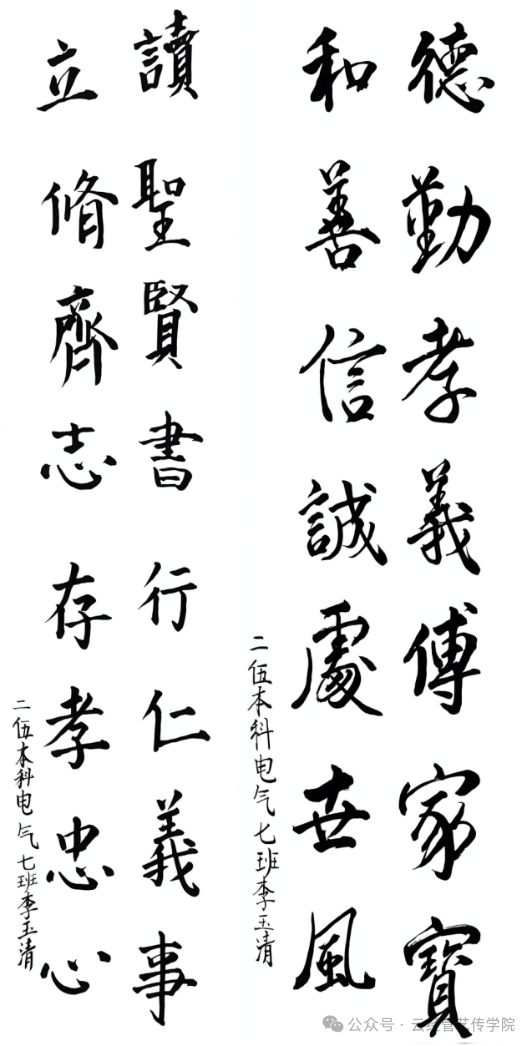 德勤孝義傅家寶
和善信誠處世風
二伍本科电气七班李玉清
讀聖賢書行仁義事
立脩齊志存孝忠心
二伍本科电气七班李玉清
公众号·云经管艺传学院